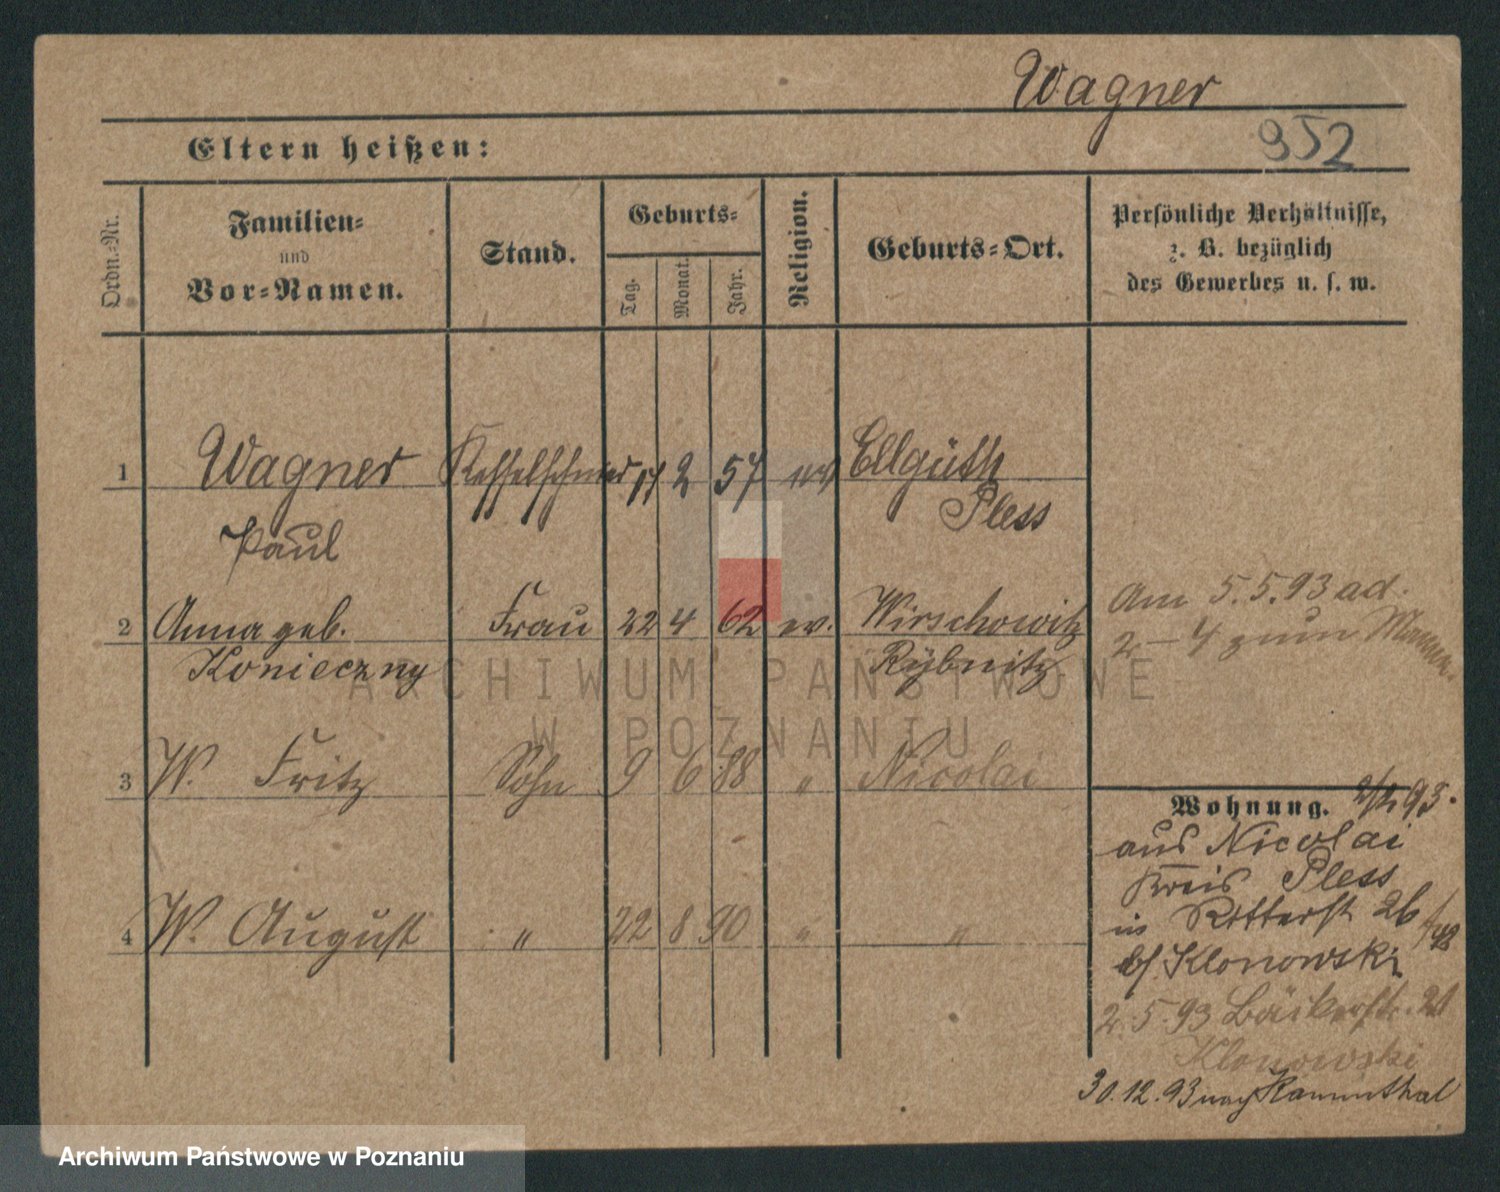 Wagner
952
Eltern heißen:
Ordn.-Nr.
Familien-
und
Vor-Namen.
Stand.
Geburts-
Tag.
Monat.
Jahr.
Religion.
Geburts-Ort.
Persönliche Verhältnisse,
z. B. bezüglich
des Gewerbes u. s. w.
1 Wagner Kesselschmied 2 57 ev Ellguth
Paul Pless
2 Anna geb. Frau 22 4 62 ev. Wirschowitz
Konieczny Rybnitz
Am 5.5.93 ad.
2–4 zum Manne.
3 W. Fritz Sohn 9 6 88 " Nicolai
4 W. August " 22 8 90 " "
Wohnung. 93.
aus Nicolai
Kreis Pless
in Ritterst 26
b/ Klonowski
2.5.93 Bäckerstr. 21
Klonowski
30.12.93 nach Kammthal
ARCHIWUM PAŃSTWOWE
W POZNANIU
Archiwum Państwowe w Poznaniu